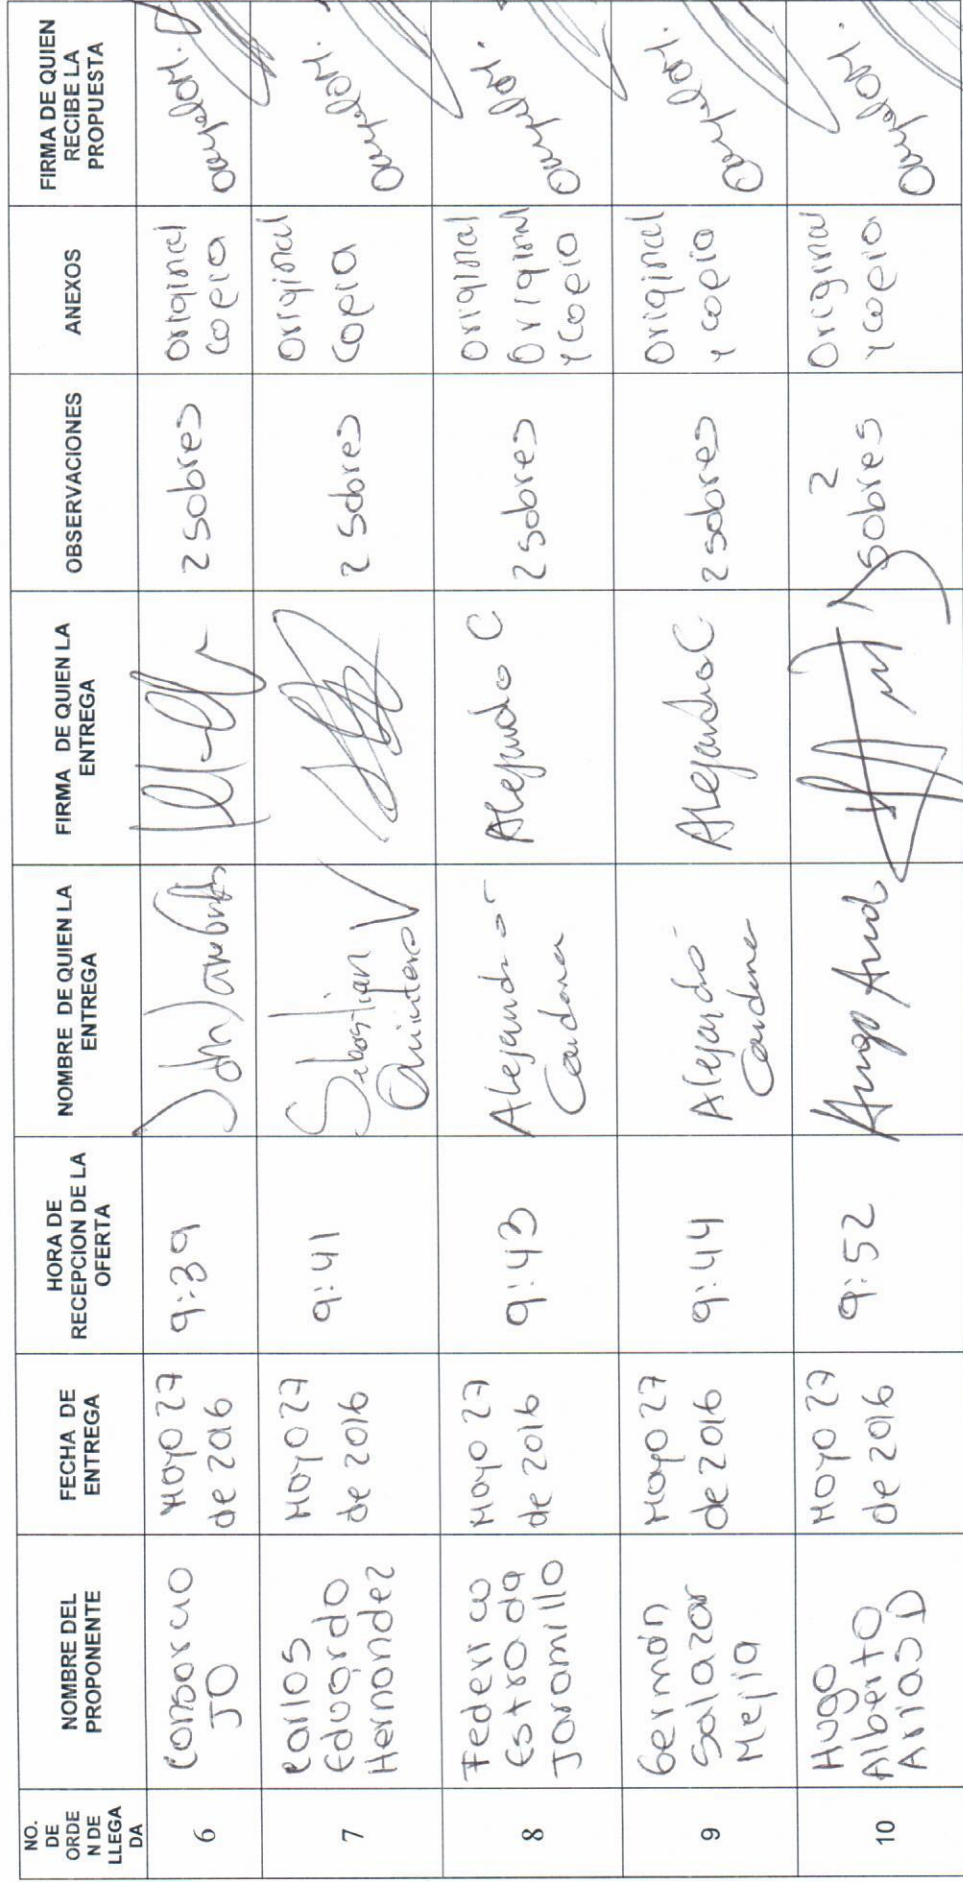 NO.
DE
ORDE
N DE
LLEGA
DA
NOMBRE DEL
PROPONENTE
FECHA DE
ENTREGA
HORA DE
RECEPCION DE LA
OFERTA
NOMBRE DE QUIEN LA
ENTREGA
FIRMA DE QUIEN LA
ENTREGA
OBSERVACIONES
ANEXOS
FIRMA DE QUIEN
RECIBE LA
PROPUESTA
6
Consorcio
JO
Mayo 27
de 2016
9:39
John
2 sobres
Original
copia
7
Carlos
Eduardo
Hernandez
Mayo 27
de 2016
9:41
Sebastian
Quintero V
2 sobres
Original
copia
8
Federico
Estrada
Jaramillo
Mayo 27
de 2016
9:43
Alejandro
Cardona
Alejandro C
2 sobres
Original
Original
y copia
9
Germán
Salazar
Mejia
Mayo 27
de 2016
9:44
Alejandro
Cardona
Alejandro C
2 sobres
Original
y copia
10
Hugo
Alberto
Arias D
Mayo 27
de 2016
9:52
Hugo
2
sobres
Original
y copia